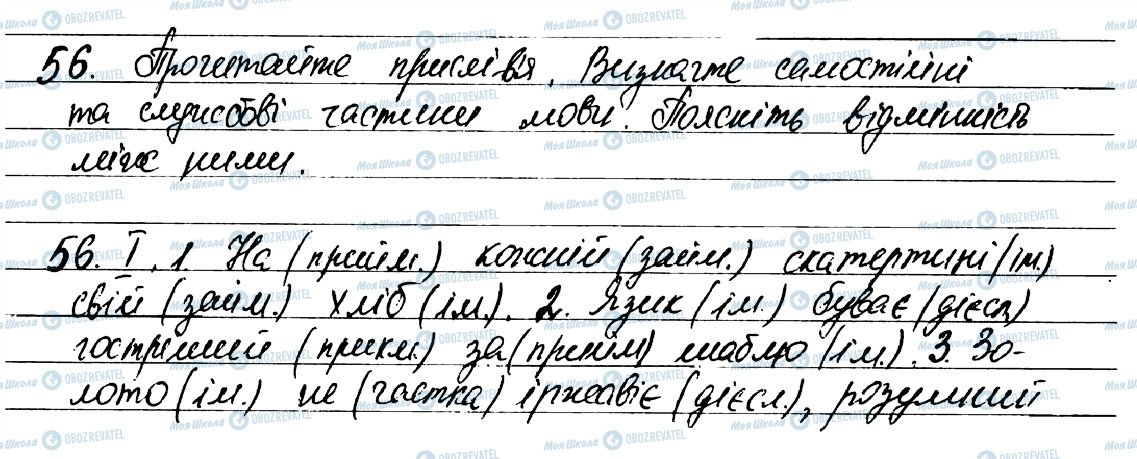 56. Прочитайте прислів'я. Визначте самостійні
та службові частини мови. Поясніть відмінність
між ними.
56. I. 1. На (прийм.) кожній (займ.) скатертині (ім.)
свій (займ.) хліб (ім.). 2. Язик (ім.) буває (дієсл)
гостріший (прикм.) за (прийм) шаблю (ім.). 3. Зо-
лото (ім.) не (частка) іржавіє (дієсл.), розумний